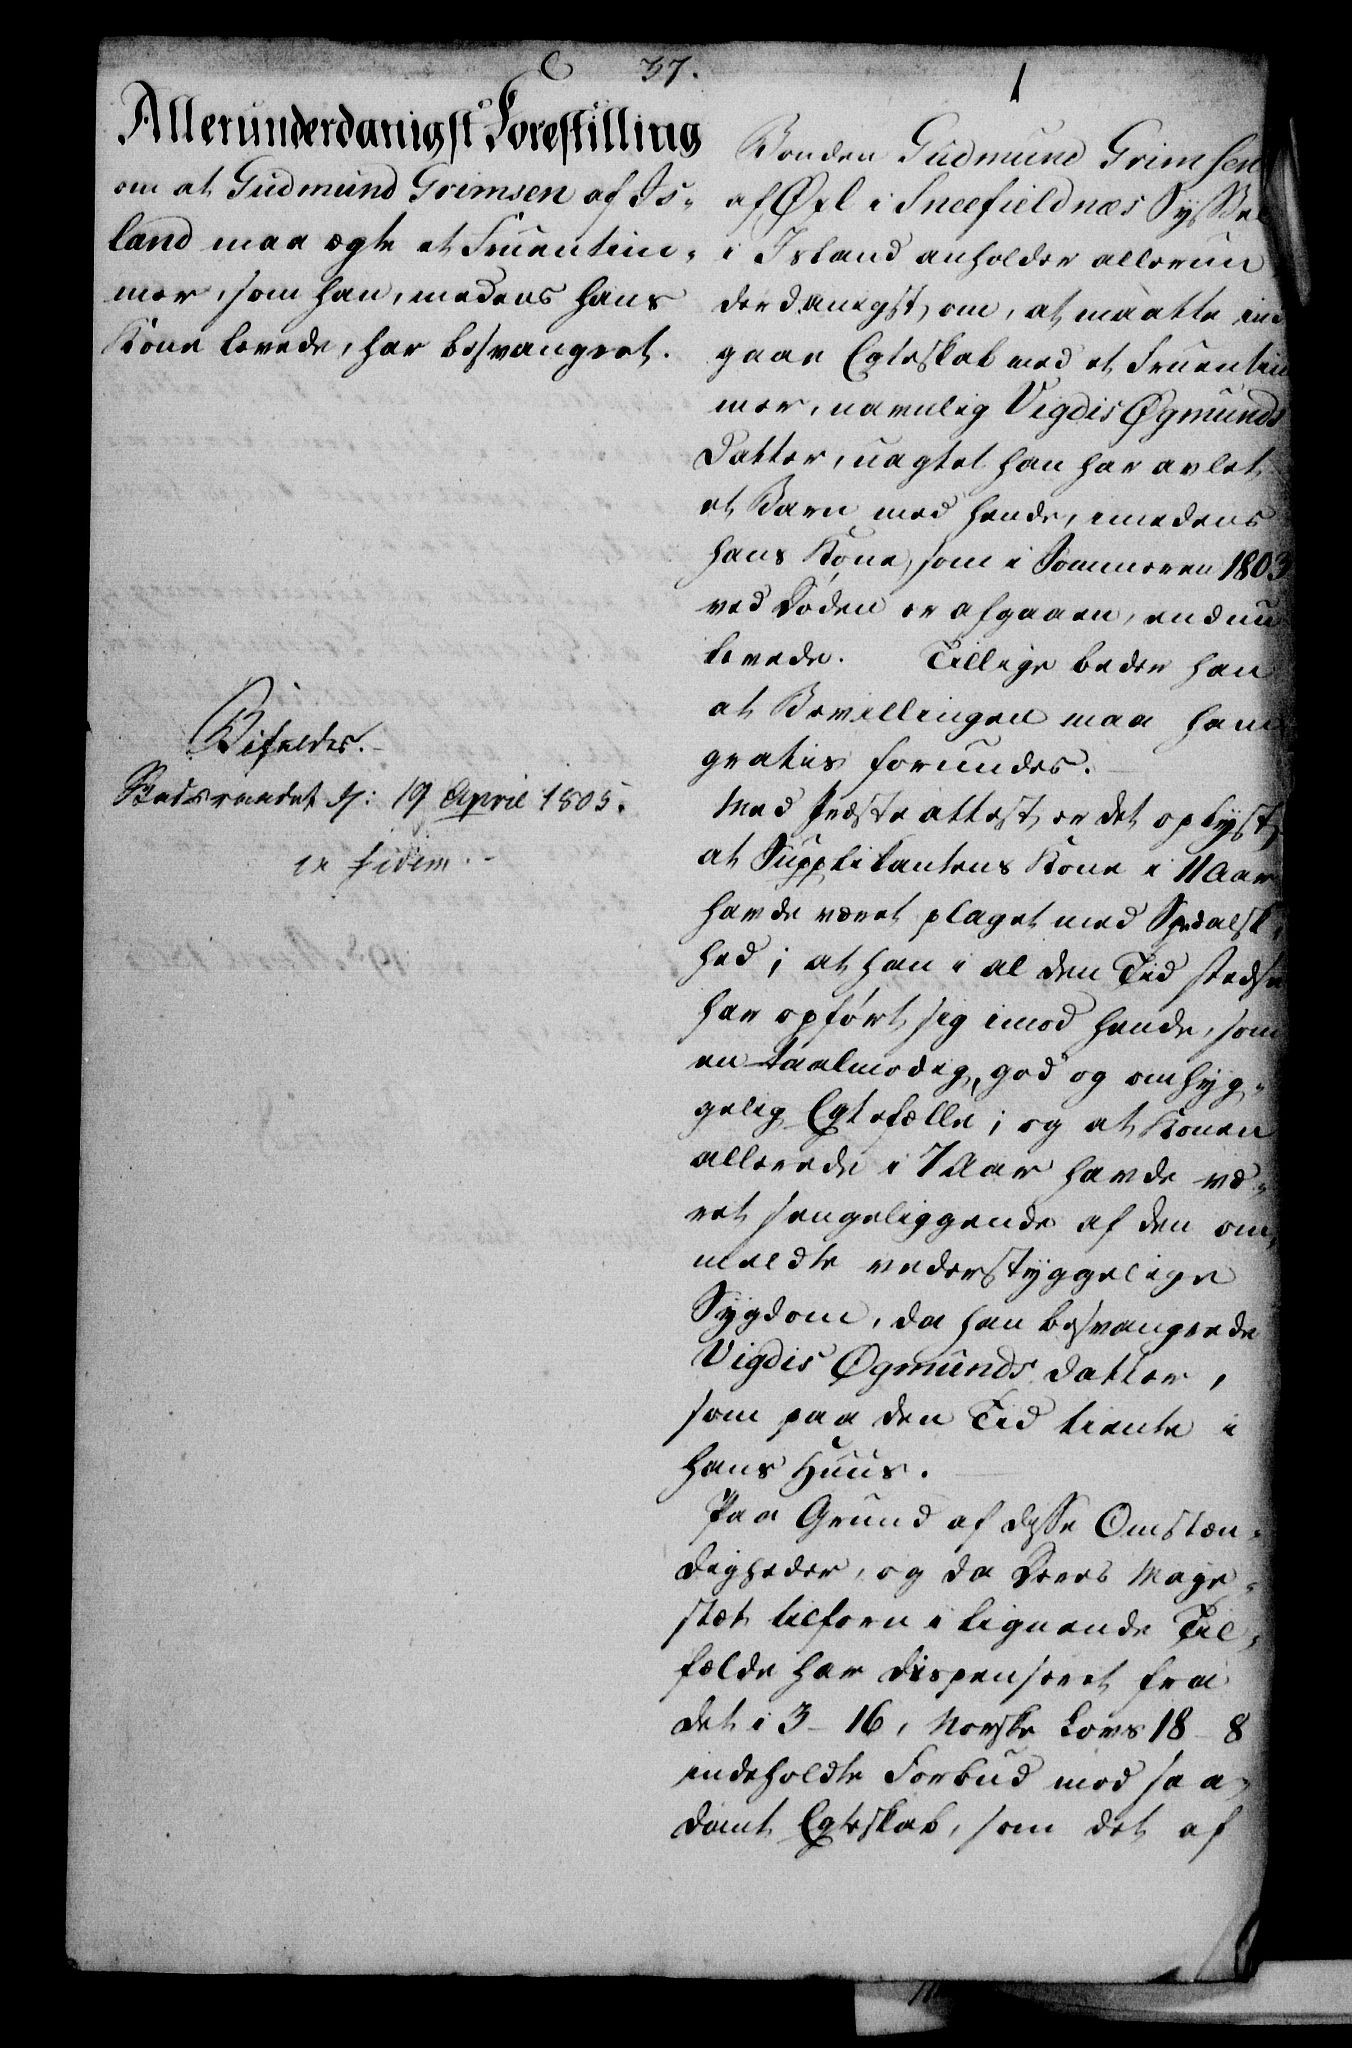 37.
1
Allerunderdanigst Forestilling
om at Gudmund Grimsen af Is-
land maa ægte et Fruentim-
mer, som han, medens hans
Kone levede, har besvangret.
Bifaldes.
Statsraadet d: 19 April 1805.
in fidem.
Bonden Gudmund Grimsen
af Øxl i Sneefieldnæs Syssel
i Island anholder allerun
derdanigst om, at maatte ind
gaae Egteskab med et Fruentim
mer, navnlig Vigdis Øgmunds
Datter, uagtet han har avlet
et Barn med hende, imedens
hans Kone, som i Sommeren 1803
ved Døden er afgaaen, endnu
levede. Tillige beder han
at Bevillingen maa ham
gratis forundes.
Med Præste attest er det oplyst,
at Supplikantens Kone i 11 Aar
havde været plaget med Spedalsk-
hed; at han i al den Tid stedse
har opført sig imod hende, som
en taalmodig, god og omhyg-
gelig Egtefælle; og at Konen
allerede i 7 Aar havde væ-
ret sengeliggende af den om-
meldte vederstyggelige
Sygdom, da han besvangrede
Vigdis Øgmunds Datter,
som paa den Tid tiente i
hans Huus.
Paa Grund af disse Omstæn-
digheder, og da Deres Maje-
stæt tilforn i lignende Til-
fælde har dispenseret fra
det i 3-16, Norske Lovs 18-8
indeholdte Forbud mod saa-
dant Egteskab, som det af